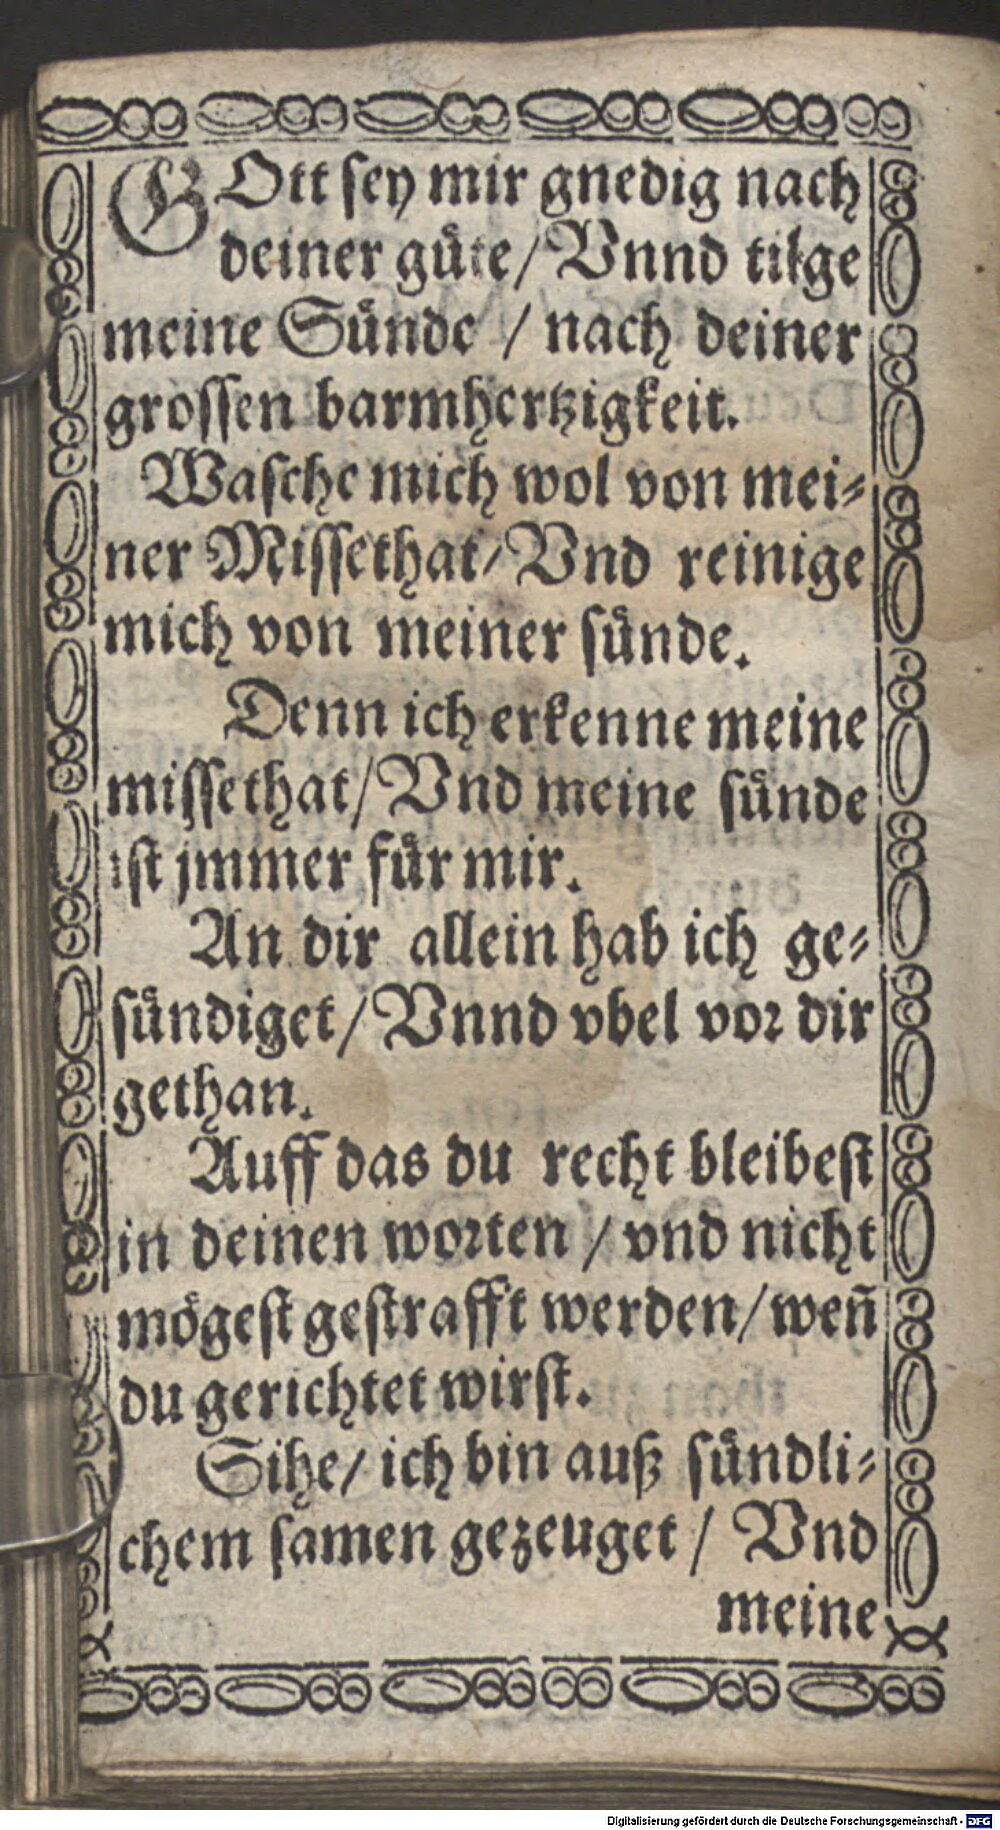 GOtt sey mir gnedig nach
deiner güte / Vnnd tilge
meine Sünde / nach deiner
grossen barmhertzigkeit.
Wasche mich wol von mei-
ner Missethat / Vnd reinige
mich von meiner sünde.
Denn ich erkenne meine
missethat / Vnd meine sünde
ist jmmer für mir.
An dir allein hab ich ge-
sündiget / Vnnd vbel vor dir
gethan.
Auff das du recht bleibest
in deinen worten / vnd nicht
mögest gestrafft werden / weñ
du gerichtet wirst.
Sihe / ich bin auß sündli-
chem samen gezeuget / Vnd
meine
Digitalisierung gefördert durch die Deutsche Forschungsgemeinschaft - DFG